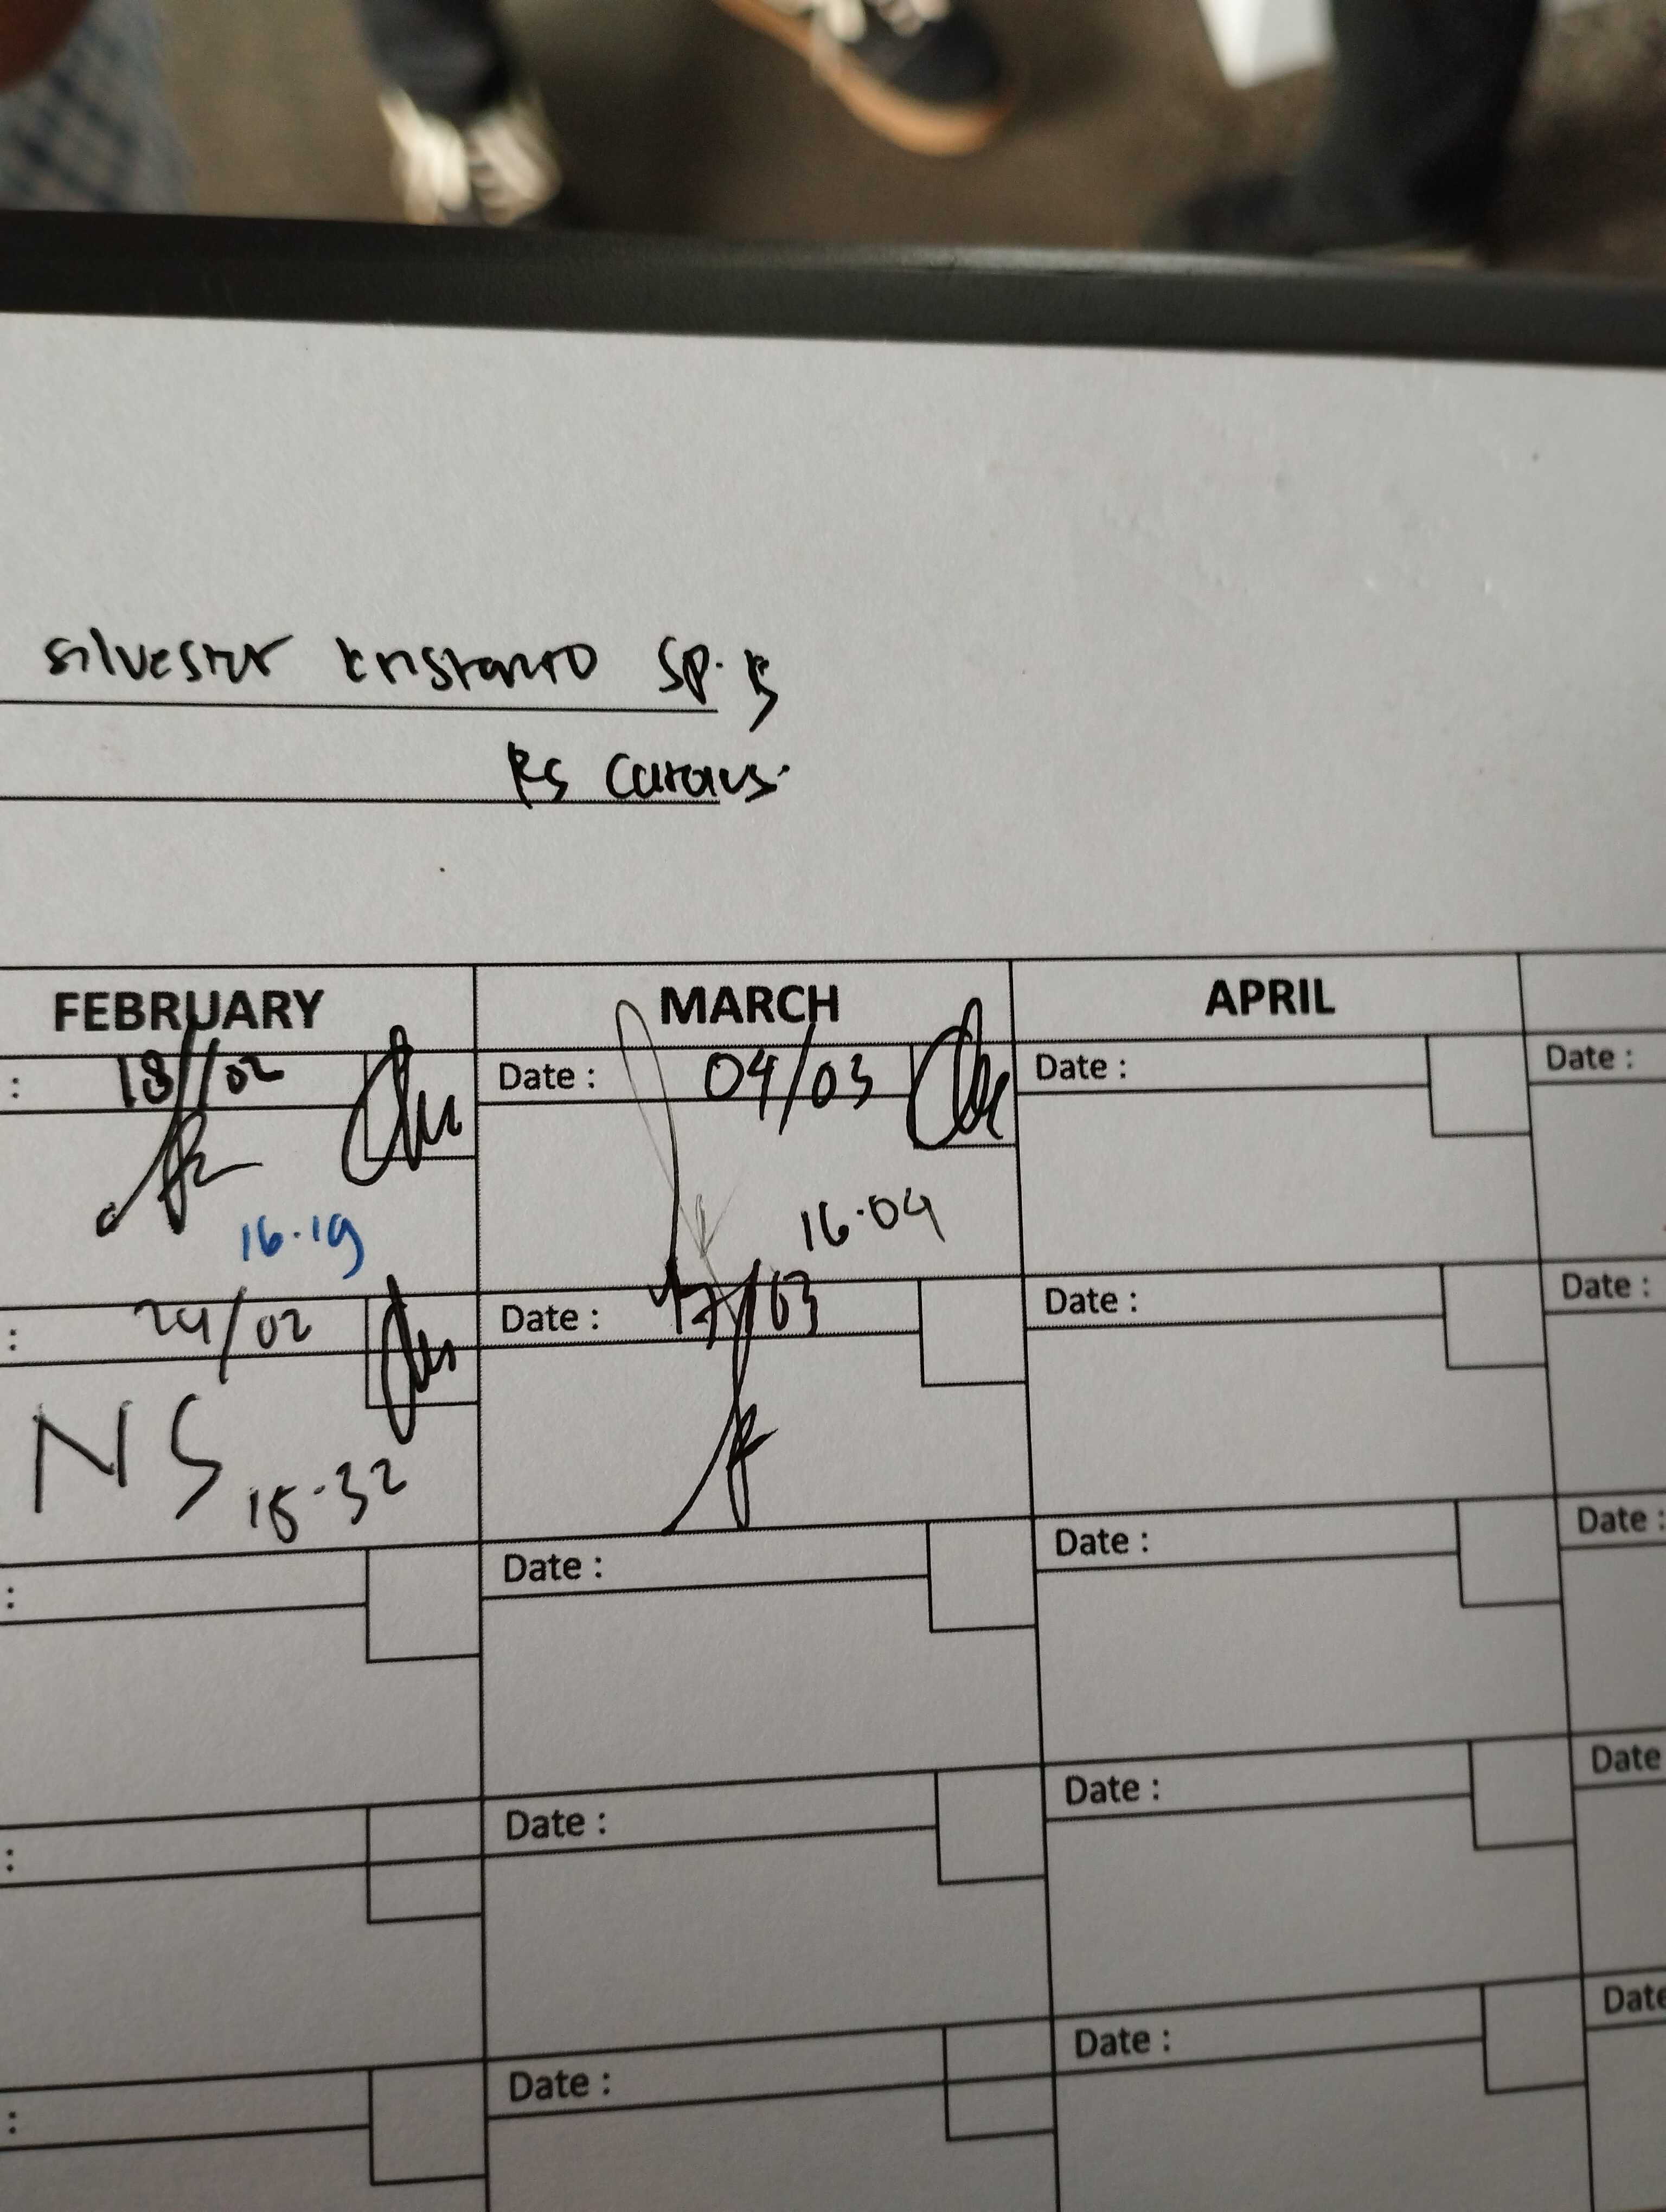 silvester kristanto SP.B
RS Carolus.
FEBRUARY MARCH APRIL
: 18/02 Date : 04/03 Date : Date :
16.19 16.04
: 24/02 Date : 17/03 Date : Date :
NS 15.32
: Date : Date : Date :
: Date : Date : Date
: Date : Date : Date